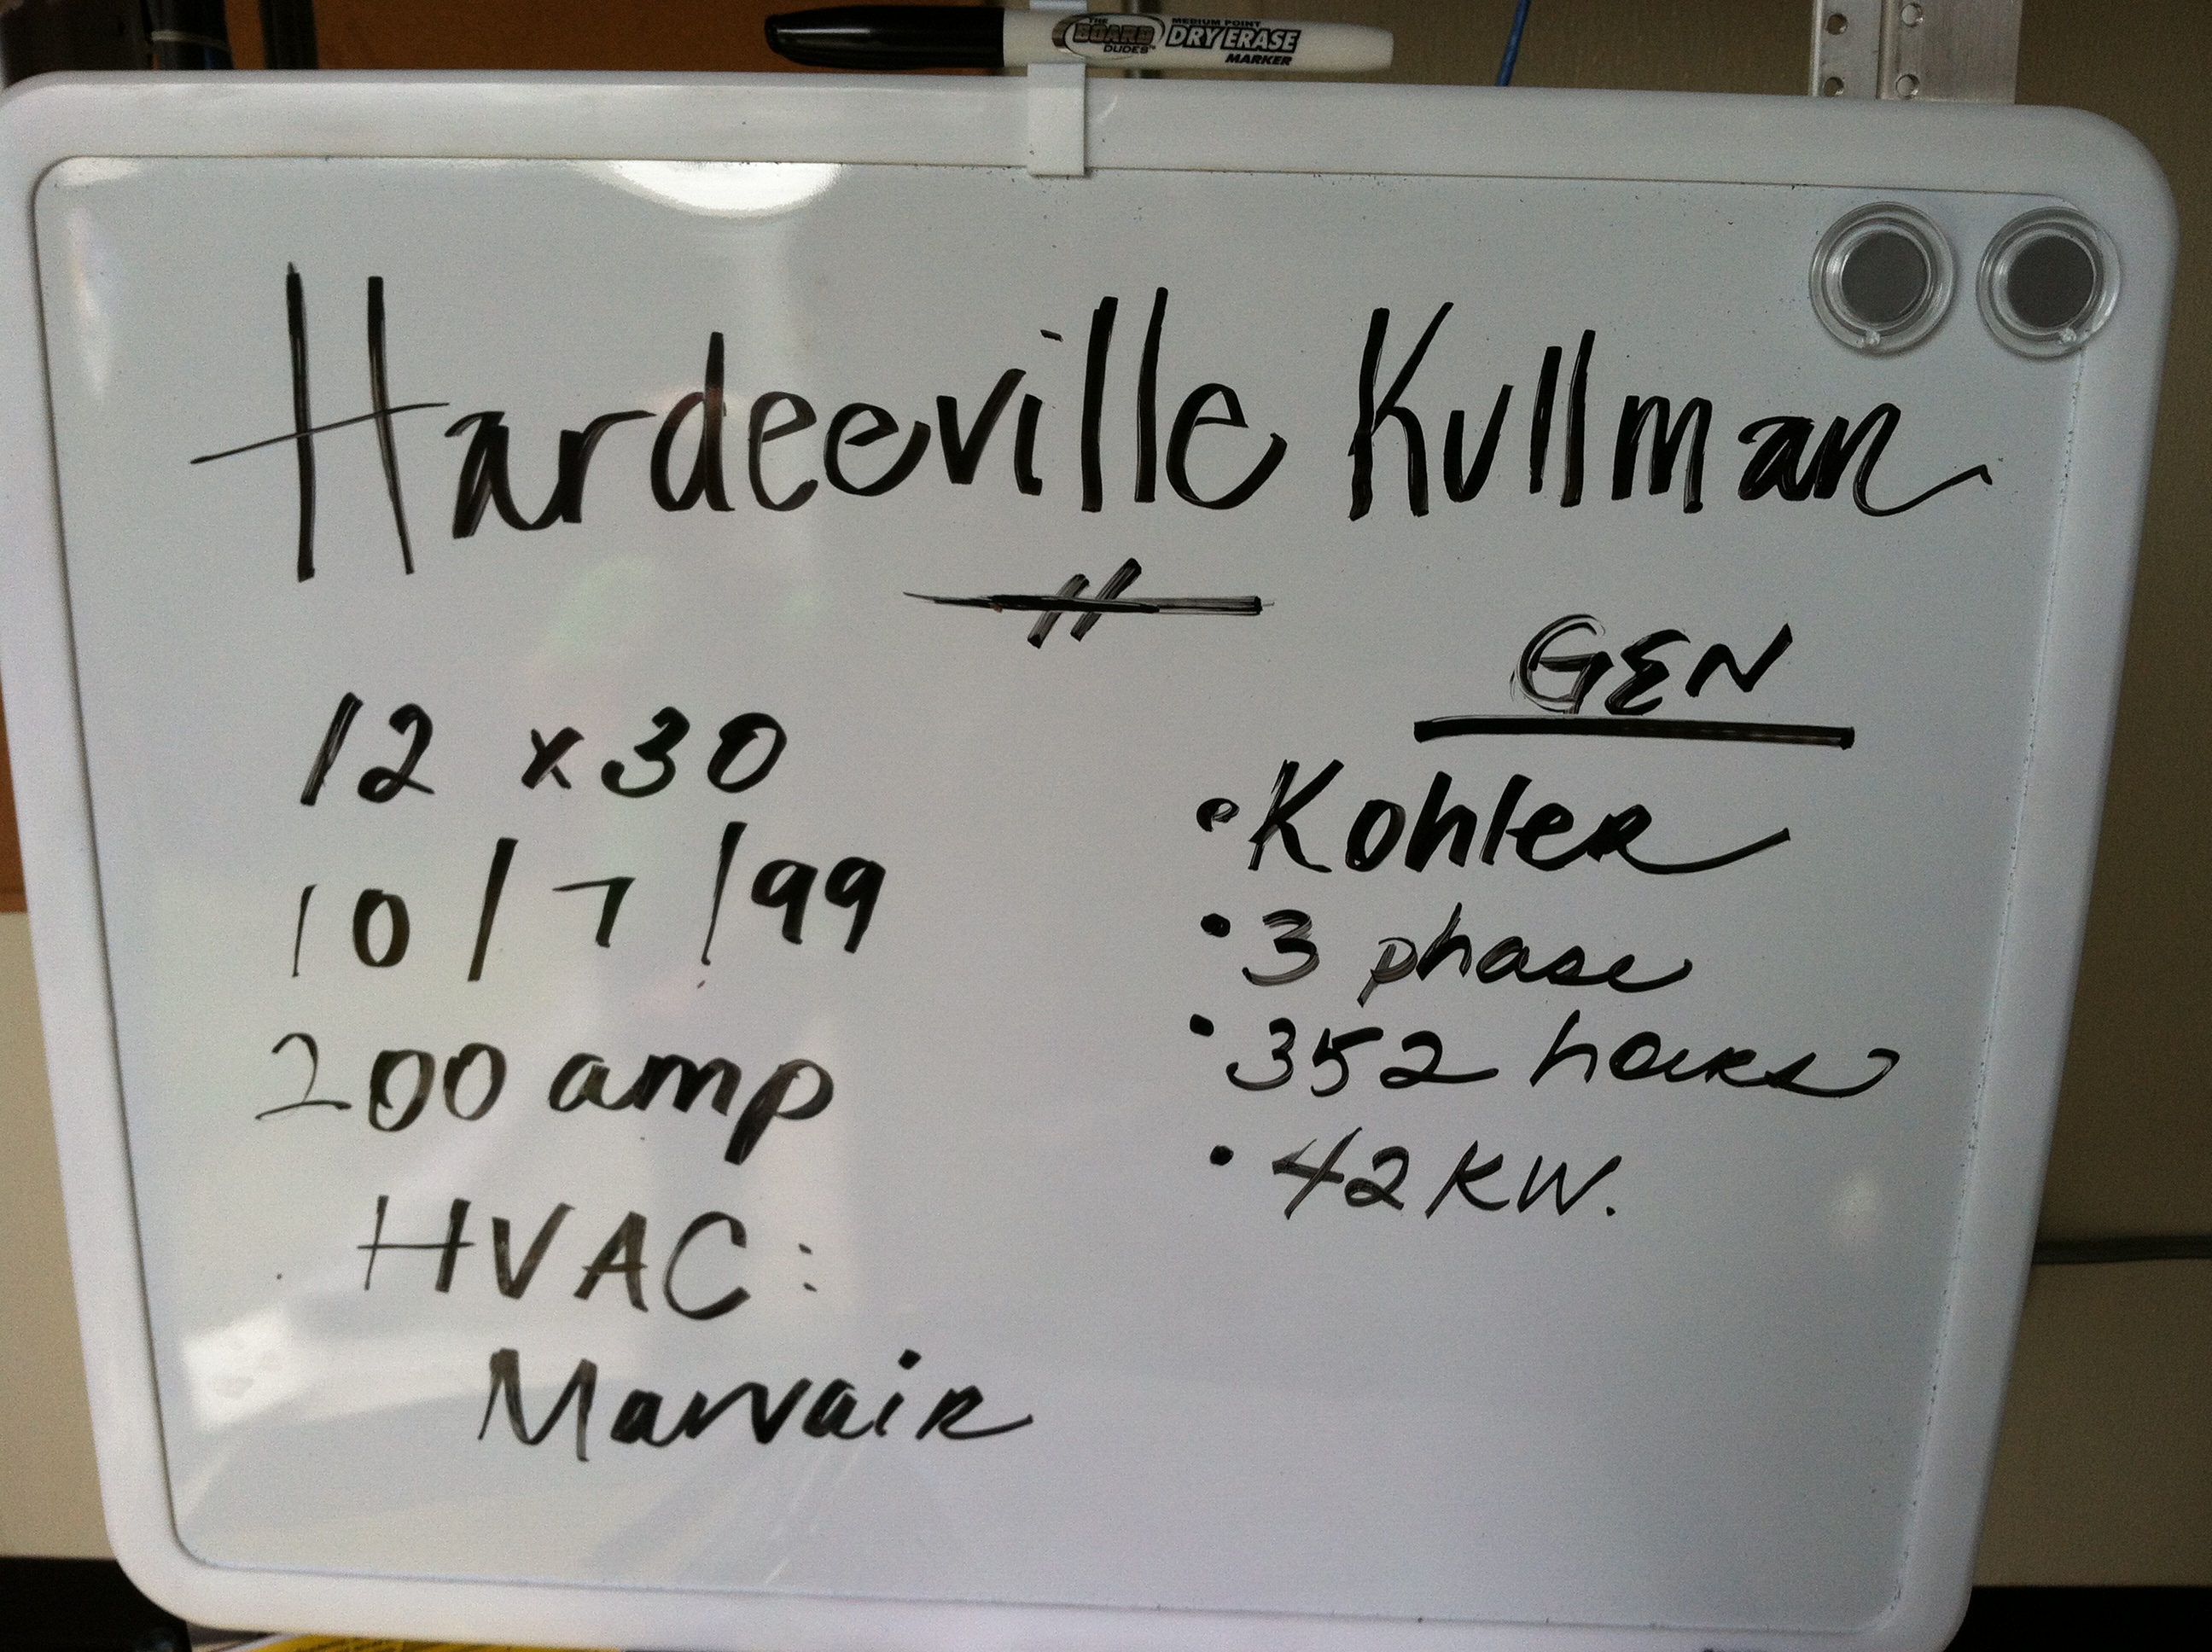 THE BOARD DUDES MEDIUM POINT DRY ERASE MARKER
Hardeeville Kullman
12 x 30
10/7/99
200 amp
HVAC:
Marvair
GEN
• Kohler
• 3 phase
• 352 hours
• 42 KW.